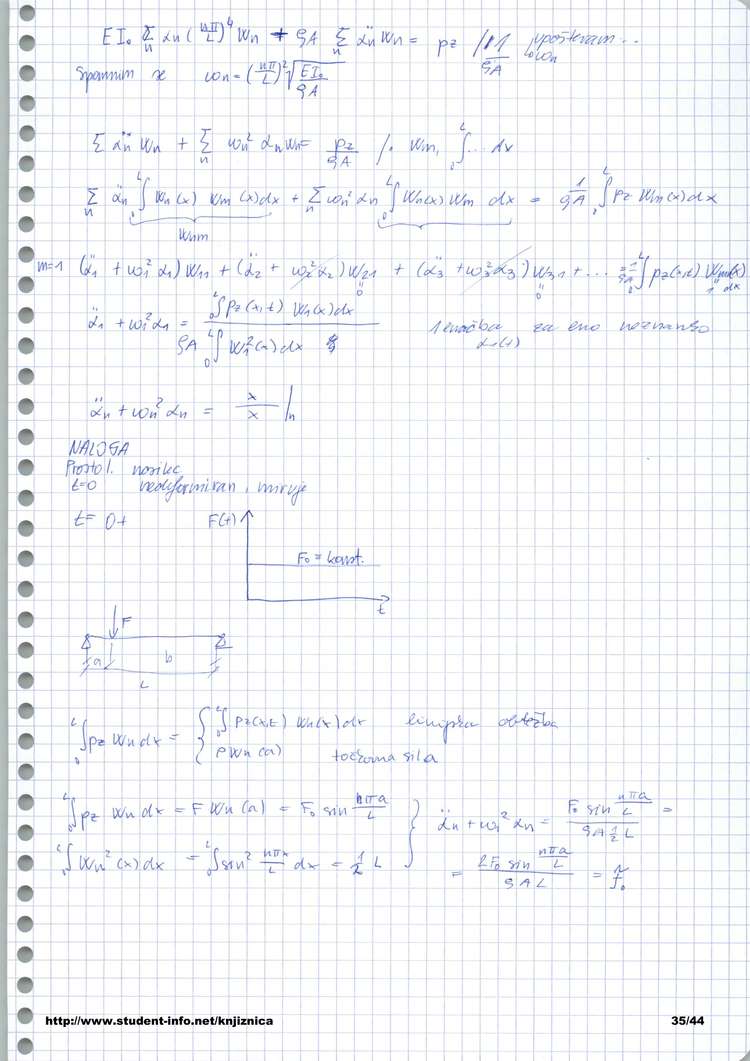 EI₀ Σₙ αₙ (nπ/L)⁴ Wₙ + ϱA Σₙ α̈ₙ Wₙ = pz / · 1/ϱA upoštevam ... ωₙ
Spomnim se ωₙ = (nπ/L)² √(EI₀/ϱA)
Σ α̈ₙ Wₙ + Σₙ ωₙ² αₙ Wₙ = pz/ϱA / · Wm, ₀∫ᴸ ... dx
Σₙ α̈ₙ ₀∫ᴸ Wₙ(x) Wm(x) dx + Σₙ ωₙ² αₙ ₀∫ᴸ Wₙ(x) Wm dx = 1/ϱA ₀∫ᴸ pz Wm(x) dx
Wnm
m=1 (α̈₁ + ω₁² α₁) W₁₁ + (α̈₂ + ω₂² α₂) W₂₁ + (α̈₃ + ω₃² α₃) W₃₁ + ... = 1/ϱA ₀∫ᴸ pz(x,t) W₁(x) dx
0 0
α̈₁ + ω₁² α₁ = ₀∫ᴸ pz(x,t) W₁(x) dx / ϱA ₀∫ᴸ W₁²(x) dx 1 enačba za eno neznanko
α₁(t)
α̈ₙ + ωₙ² αₙ = x/x |ₙ
NALOGA
Prosto l. nosilec
t=0 nedeformiran, miruje
t= 0+ F(t)
F₀ = konst.
t
F
a b
L
₀∫ᴸ pz Wn dx = { ₀∫ᴸ pz(x,t) Wn(x) dx linijska obtežba
P Wn(a) točkovna sila
₀∫ᴸ pz Wn dx = F Wn(a) = F₀ sin nπa/L } α̈ₙ + ω₁² αₙ = F₀ sin nπa/L / ϱA ½ L =
₀∫ᴸ Wn²(x) dx = ₀∫ᴸ sin² nπx/L dx = ½ L = 2F₀ sin nπa/L / ϱAL = f̃₀
http://www.student-info.net/knjiznica 35/44